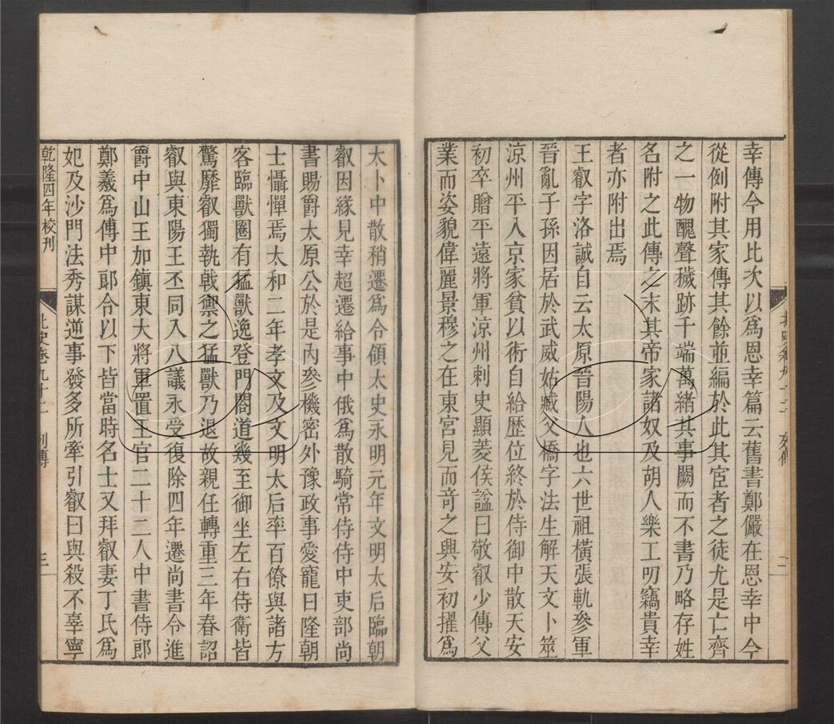 幸傳今用比次以爲恩幸篇云舊書鄭儼在恩幸中今
從例附其家傳其餘並編於此其宦者之徒尤是亡齊
之一物醜聲穢跡千端萬緒其事闕而不書乃略存姓
名附之此傳之末其帝家諸奴及胡人樂工叨竊貴幸
者亦附出焉
王叡字洛誠自云太原晉陽人也六世祖橫張軌參軍
晉亂子孫因居於武威姑臧父橋字法生解天文卜筮
涼州平入京家貧以術自給歷位終於侍御中散天安
初卒贈平遠將軍涼州刺史顯菱侯謚曰敬叡少傳父
業而姿貌偉麗景穆之在東宮見而奇之興安初擢爲
太卜中散稍遷爲令領太史承明元年文明太后臨朝
叡因緣見幸超遷給事中俄爲散騎常侍侍中吏部尚
書賜爵太原公於是內參機密外豫政事愛寵日隆朝
士懾憚焉太和二年孝文及文明太后率百僚與諸方
客臨獸圈有猛獸逸登門閣道幾至御坐左右侍衛皆
驚靡叡獨執戟禦之猛獸乃退故親任轉重三年春詔
叡與東陽王丕同入八議永受復除四年遷尚書令進
爵中山王加鎮東大將軍置王官二十二人中書侍郎
鄭羲爲傅中郎令以下皆當時名士又拜叡妻丁氏爲
妃及沙門法秀謀逆事發多所牽引叡曰與殺不辜寧
乾隆四年校刊
北史卷九十二 列傳
三